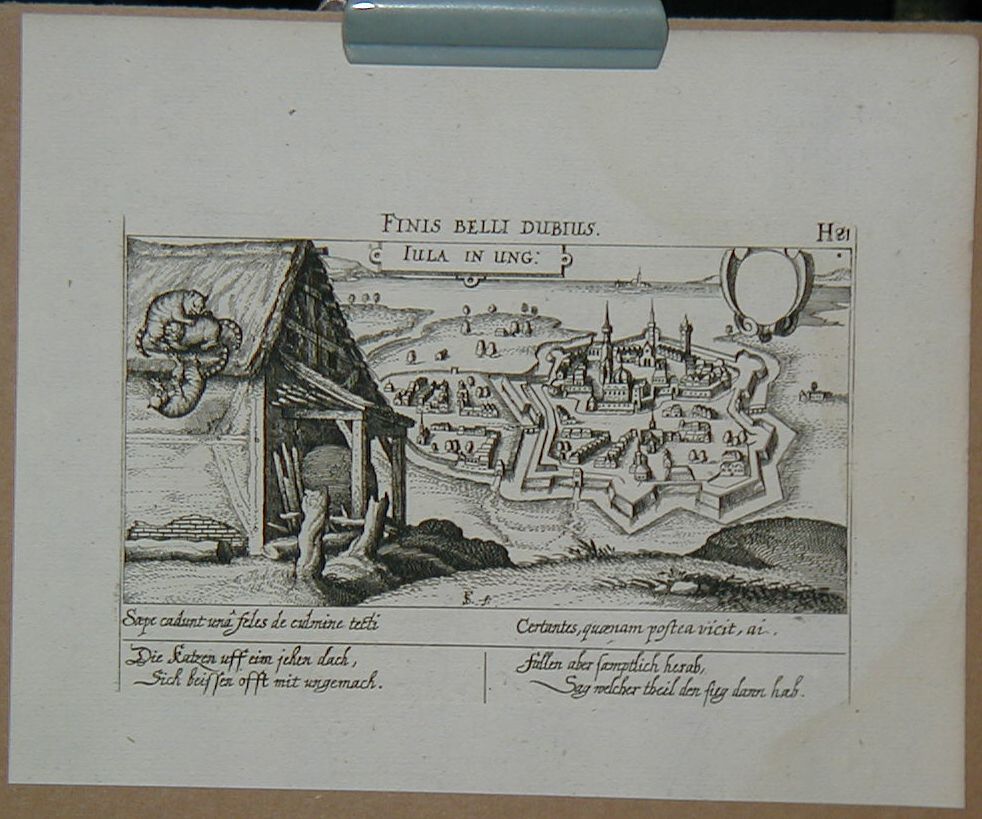 FINIS BELLI DUBIUS.
H81
IULA IN UNG:
Sæpe cadunt unâ feles de culmine tecti
Certantes, quænam postea vicit, ai.
Die Katzen uff eim jehen dach,
Sich beissen offt mit ungemach.
Fallen aber sæmptlich herab,
Sag welcher theil den sieg dann hab.